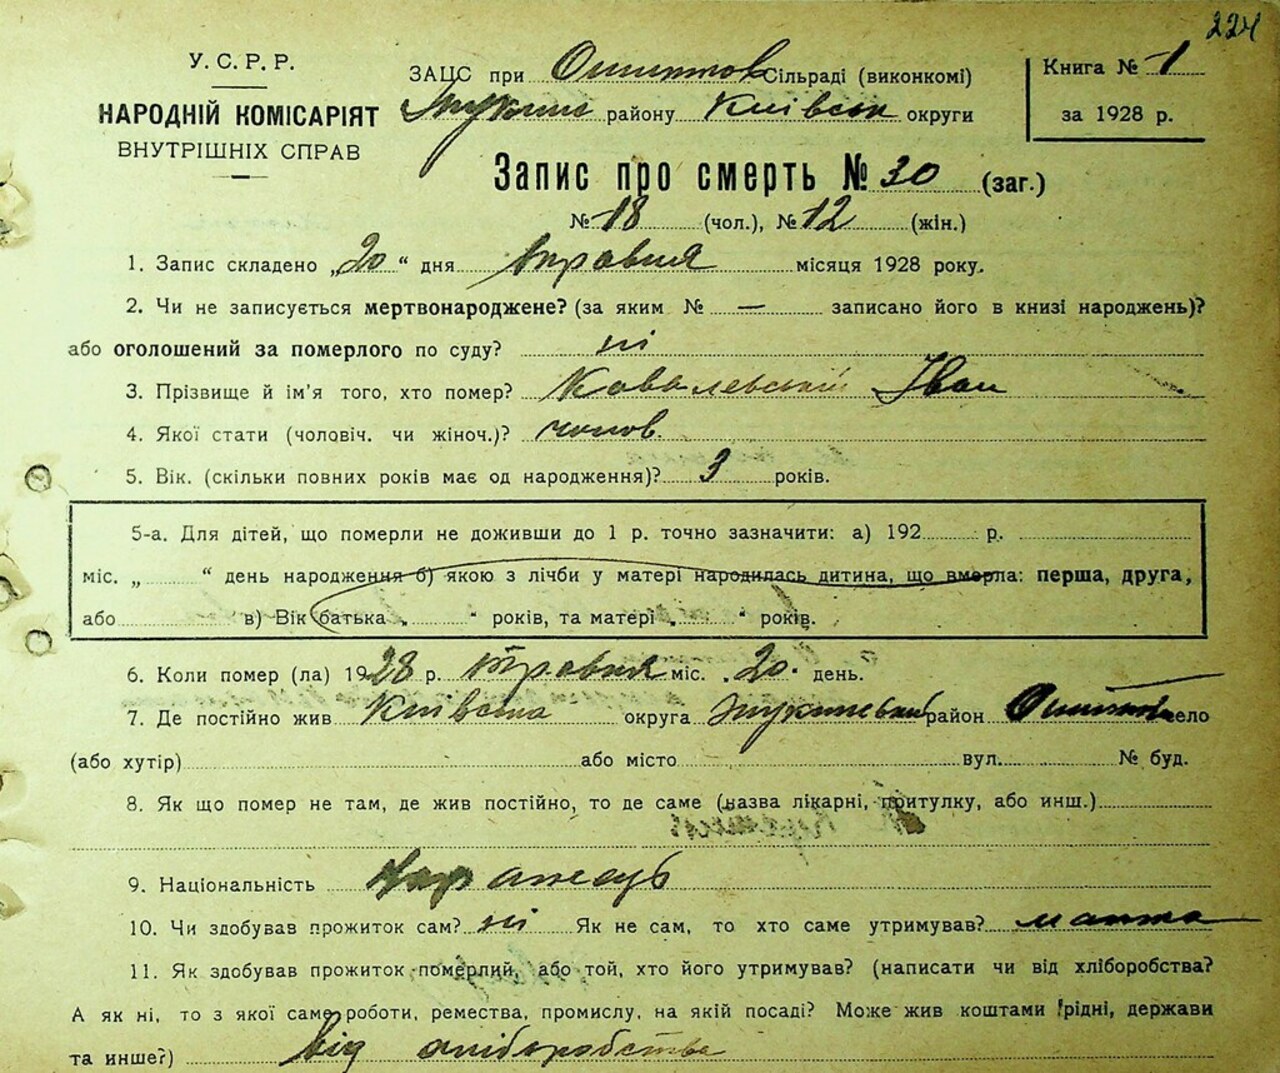 224
У. С. Р. Р.
НАРОДНІЙ КОМІСАРІЯТ
ВНУТРІШНІХ СПРАВ
ЗАЦС при Сільраді (виконкомі)
району Київськ округи
Книга № 1
за 1928 р.
Запис про смерть № 30 (заг.)
№ 18 (чол.), № 12 (жін.)
1. Запис складено „20“ дня травня місяця 1928 року.
2. Чи не записується мертвонароджене? (за яким № — записано його в книзі народжень)?
або оголошений за померлого по суду? ні
3. Прізвище й ім'я того, хто помер? Ковалевський Іван
4. Якої стати (чоловіч. чи жіноч.)? чолов.
5. Вік. (скільки повних років має од народження)? 3 років.
5-а. Для дітей, що померли не доживши до 1 р. точно зазначити: а) 192 р.
міс. „ “ день народження б) якою з лічби у матері народилась дитина, що вмерла: перша, друга,
або в) Вік батька „ “ років, та матері „ “ років.
6. Коли помер (ла) 1928 р. травня міс. „20“ день.
7. Де постійно жив Київська округа район село
(або хутір) або місто вул. № буд.
8. Як що помер не там, де жив постійно, то де саме (назва лікарні, притулку, або инш.)
9. Національність
10. Чи здобував прожиток сам? ні Як не сам, то хто саме утримував?
11. Як здобував прожиток померлий, або той, хто його утримував? (написати чи від хліборобства?
А як ні, то з якої саме роботи, ремества, промислу, на якій посаді? Може жив коштами рідні, держави
та инше?) від хліборобства